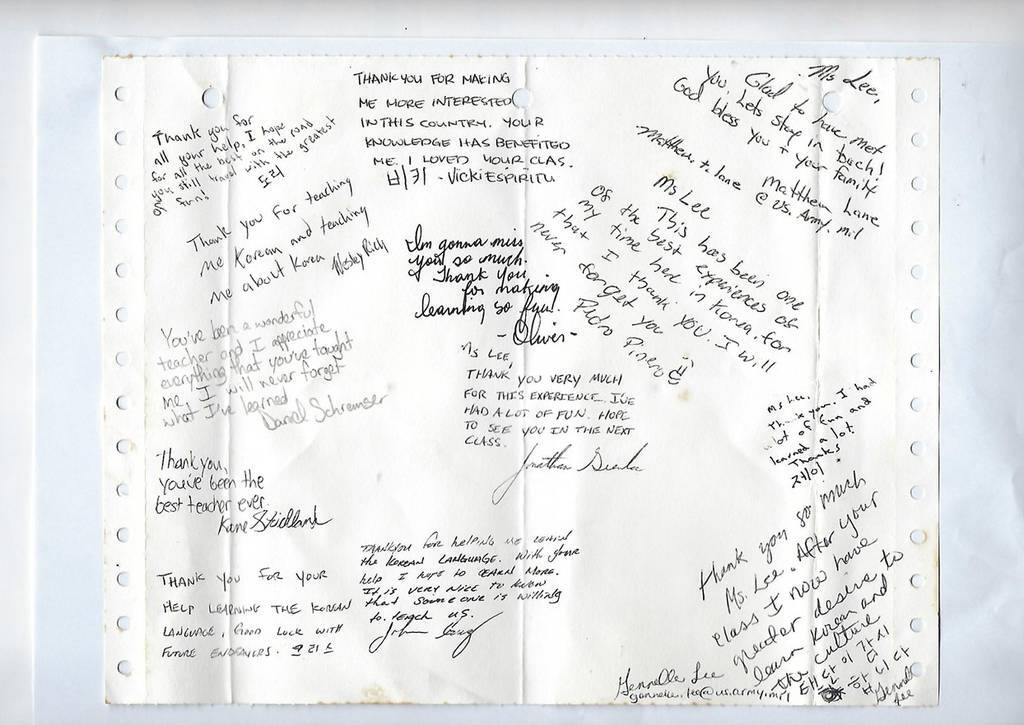 Thank you for
all your help, I hope
for all the best on the road
you still travel with the greatest
fun!
도리
THANK YOU FOR MAKING
ME MORE INTERESTED
IN THIS COUNTRY. YOUR
KNOWLEDGE HAS BENEFITED
ME. I LOVED YOUR CLAS.
비키 - VICKI ESPIRITU
Ms Lee,
Glad to have met
you, Lets stay in touch!
God bless you & your family
Matthew Lane
Matthew.t.lane@us.army.mil
Thank you for teaching
me Korean and teaching
me about Korea Wesley Rich
I'm gonna miss
you so much.
Thank you
for making
learning so fun!
- Oliver -
Ms Lee
This has been one
of the best experiences of
my time here in Korea. for
that I thank YOU. I will
never forget you
Pedro Pinero
You've been a wonderful
teacher and I appreciate
everything that you've taught
me, I will never forget
what I've learned
Daniel
MS LEE,
THANK YOU VERY MUCH
FOR THIS EXPERIENCE. I'VE
HAD A LOT OF FUN. HOPE
TO SEE YOU IN THE NEXT
CLASS.
Jonathan
Ms Lee.
Thank you. I had
alot of fun and
learned a lot.
Thanks
Thank you,
you've been the
best teacher ever.
Kane Stridland
THANK YOU FOR YOUR
HELP LEARNING THE KOREAN
LANGUAGE, GOOD LUCK WITH
FUTURE ENDEAVERS.
Thankyou for helping me learn
the Korean LANGUAGE. With your
help I hope to LEARN MORE.
It is very nice to know
that someone is willing
to teach us.
Thank you so much
Ms. Lee. After your
class I now have
greater desire to
learn Korean and
the culture
Jennelle Lee